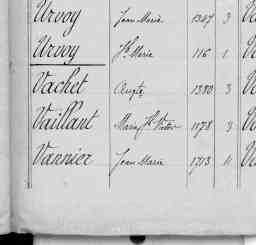 Urvoy Jean Marie 1347 3
Urvoy Jh Marie 116 1
Vachet Augte 1380 3
Vaillant Marie Jh Victor 1178 3
Vannier Jean Marie 1713 11